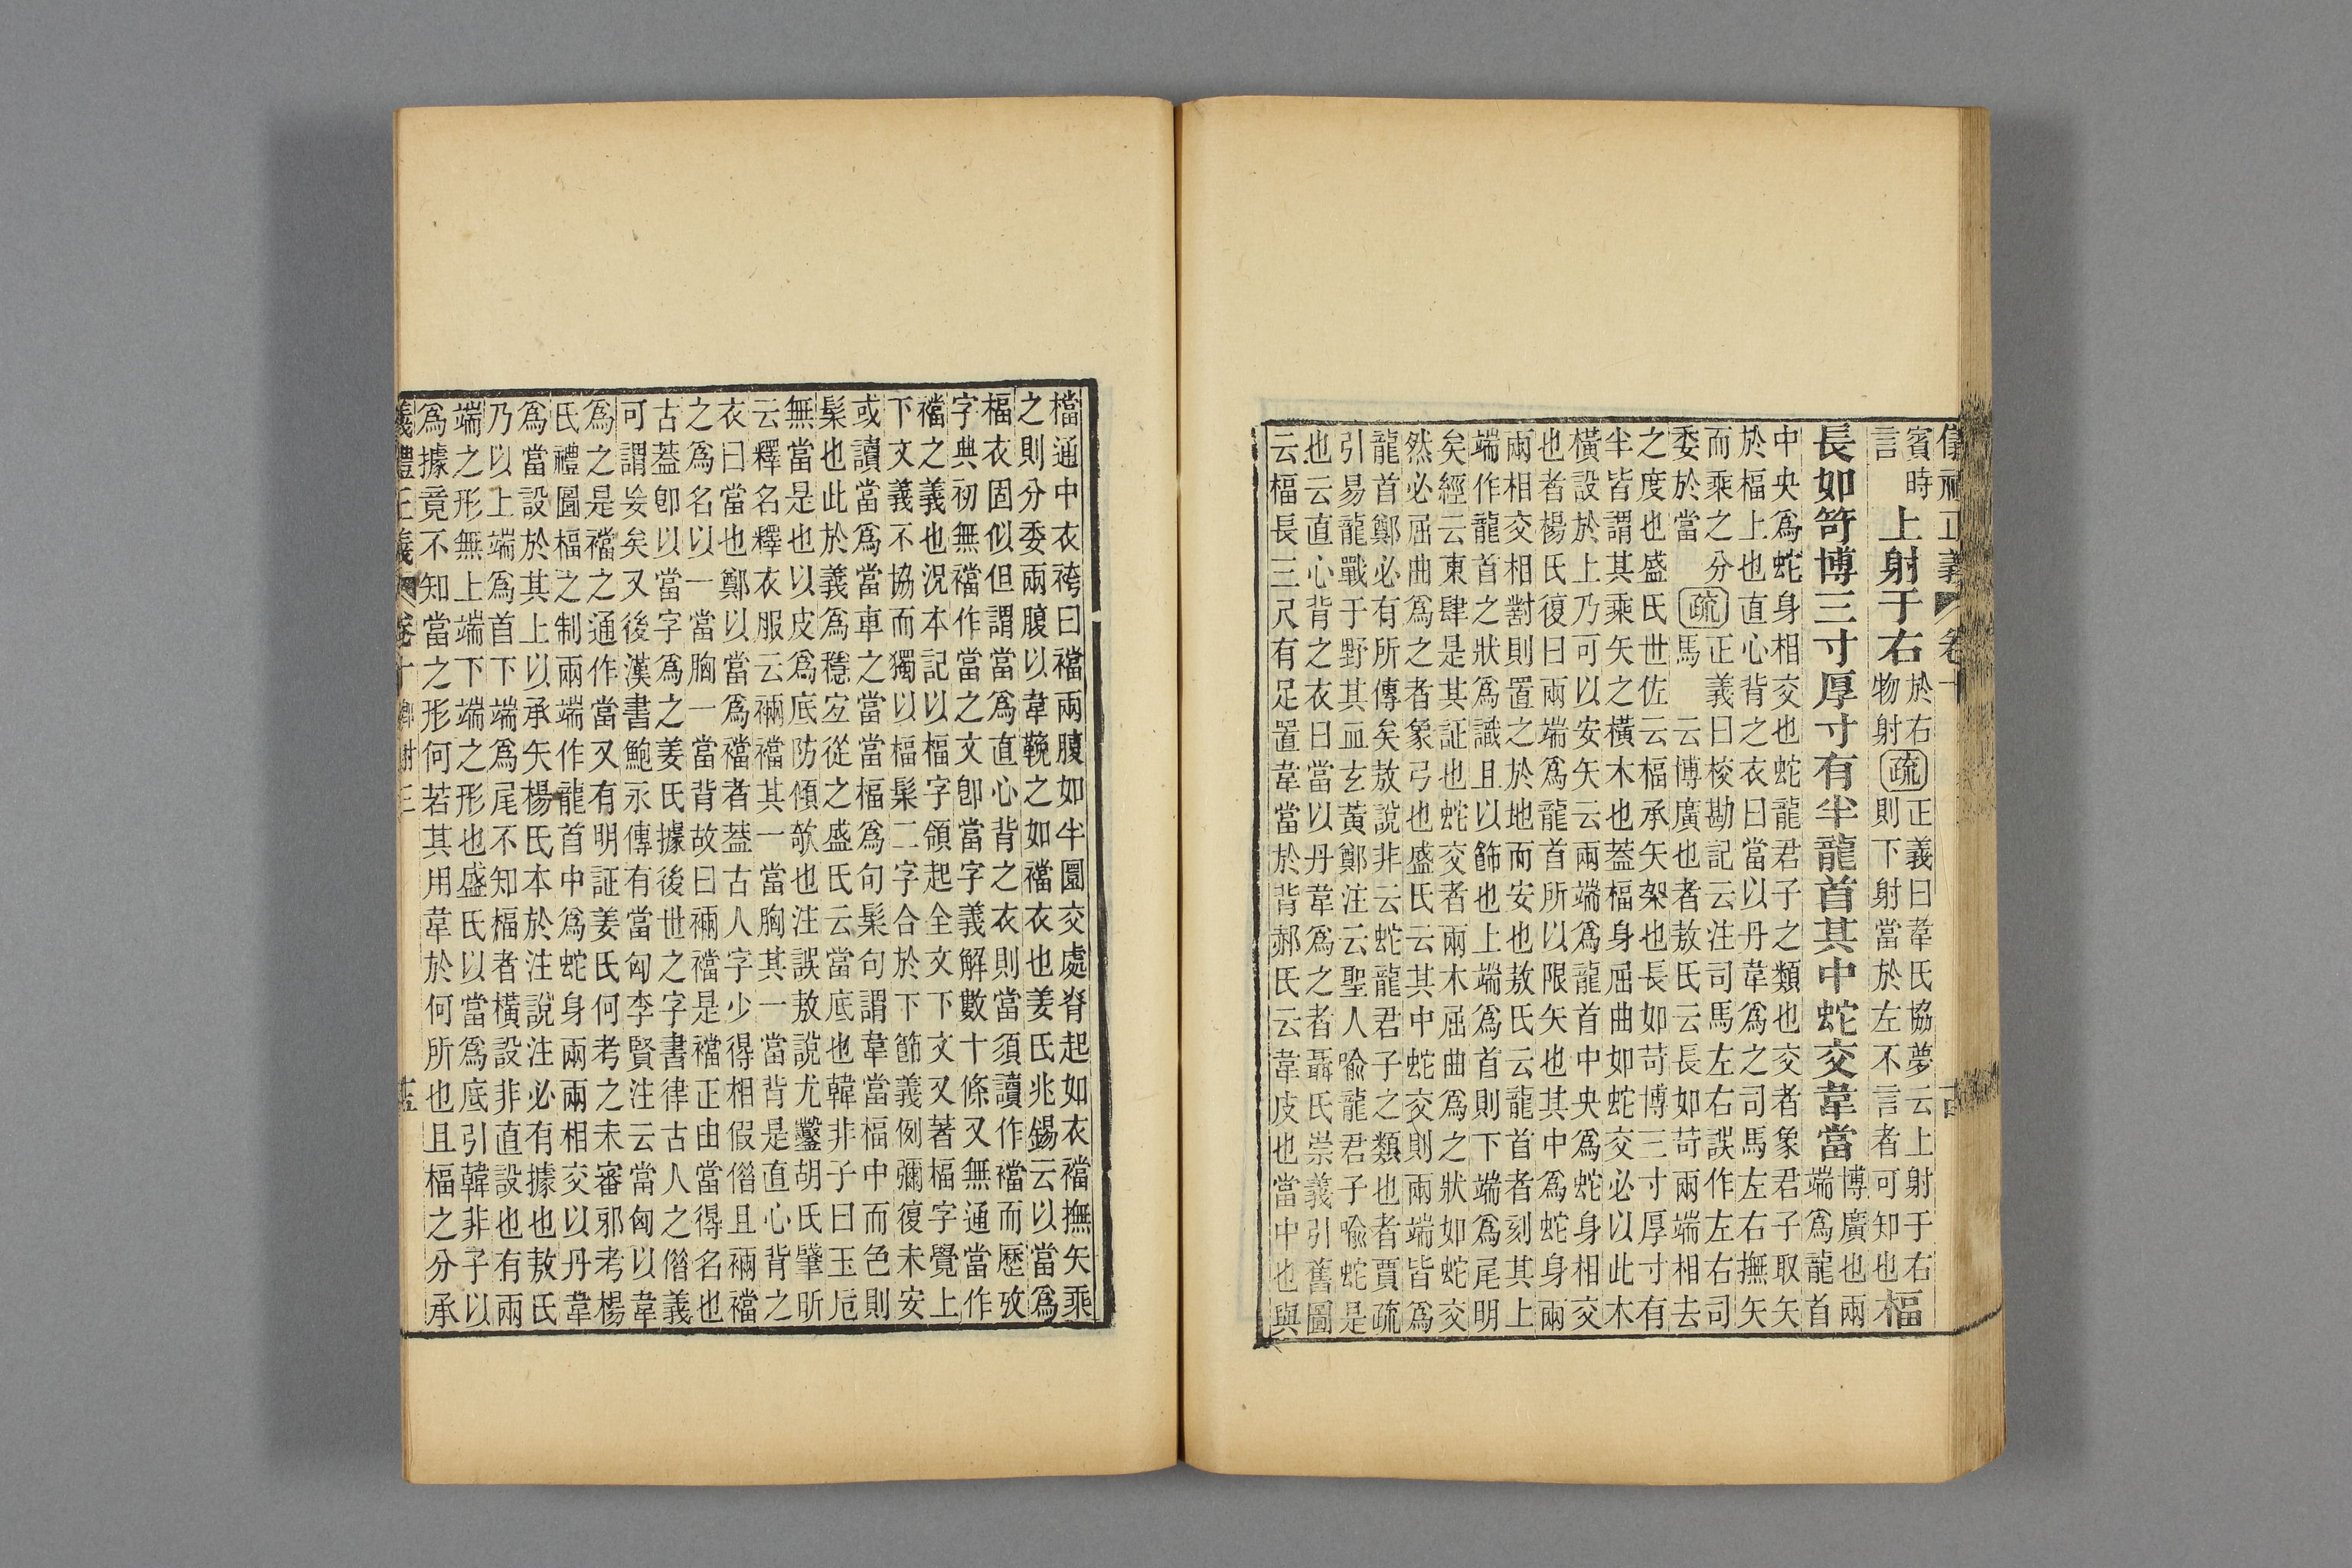 儀禮正義 卷十
賓時
言
上射于右
於右
物射
疏
正義曰韋氏協夢云上射于右
則下射當於左不言者可知也
楅
長如笴博三寸厚寸有半龍首其中蛇交韋當
博廣也兩
端爲龍首
中央爲蛇身相交也蛇龍君子之類也交者象君子取矢
於楅上也直心背之衣曰當以丹韋爲之司馬左右撫矢
而乘之分
委於當
疏
正義曰校勘記云注司馬左右誤作左右司
馬 云博廣也者敖氏云長如笴兩端相去
之度也盛氏世佐云楅承矢架也長如笴博三寸厚寸有
半皆謂其乘矢之橫木也蓋楅身屈曲如蛇交必以此木
橫設於上乃可以安矢云兩端爲龍首中央爲蛇身相交
也者楊氏復曰兩端爲龍首所以限矢也其中爲蛇身兩
兩相交相對則置之於地而安也敖氏云龍首者刻其上
端作龍首之狀爲識且以飾也上端爲首則下端爲尾明
矣經云東肆是其証也蛇交者兩木屈曲爲之狀如蛇交
然必屈曲爲之者象弓也盛氏云其中蛇交則兩端皆爲
龍首鄭必有所傳矣敖說非云蛇龍君子之類也者賈疏
引易龍戰于野其血玄黃鄭注云聖人喻龍君子喻蛇是
也云直心背之衣曰當以丹韋爲之者聶氏崇義引舊圖
云楅長三尺有足置韋當於背郝氏云韋皮也當中也與
檔通中衣袴曰襠兩腹如半圜交處脊起如衣襠撫矢乘
之則分委兩腹以韋鞔之如襠衣也姜氏兆錫云以當爲
楅衣固似但謂當爲直心背之衣則當須讀作襠而歷攷
字典初無襠作當之文卽當字義解數十條又無通當作
襠之義也況本記以楅字領起全文下文又著楅字覺上
下文義不協而獨以楅髹二字合於下節義例彌復未安
或讀當爲當車之當當楅爲句髹句謂韋當楅中而色則
髹也此於義爲穩宜從之盛氏云當底也韓非子曰玉卮
無當是也以皮爲底防傾欹也注誤敖說尤鑿胡氏肇昕
云釋名釋衣服云裲襠其一當胸其一當背是直心背之
衣曰當也鄭以當爲襠者蓋古人字少得相假借且裲襠
之爲名以一當胸一當背故曰裲襠是襠正由當得名也
古蓋卽以當字爲之姜氏據後世之字書律古人之僭義
可謂妄矣又後漢書鮑永傳有當匈李賢注云當匈以韋
爲之是襠之通作當又有明証姜氏何考之未審邪考楊
氏禮圖楅之制兩端作龍首中爲蛇身兩兩相交以丹韋
爲當設於其上以承矢楊氏本於注說注必有據也敖氏
乃以上端爲首下端爲尾不知楅者橫設非直設也有兩
端之形無上端下端之形也盛氏以當爲底引韓非子以
爲據竟不知當之形何若其用韋於何所也且楅之分承
儀禮正義 卷十鄉射三